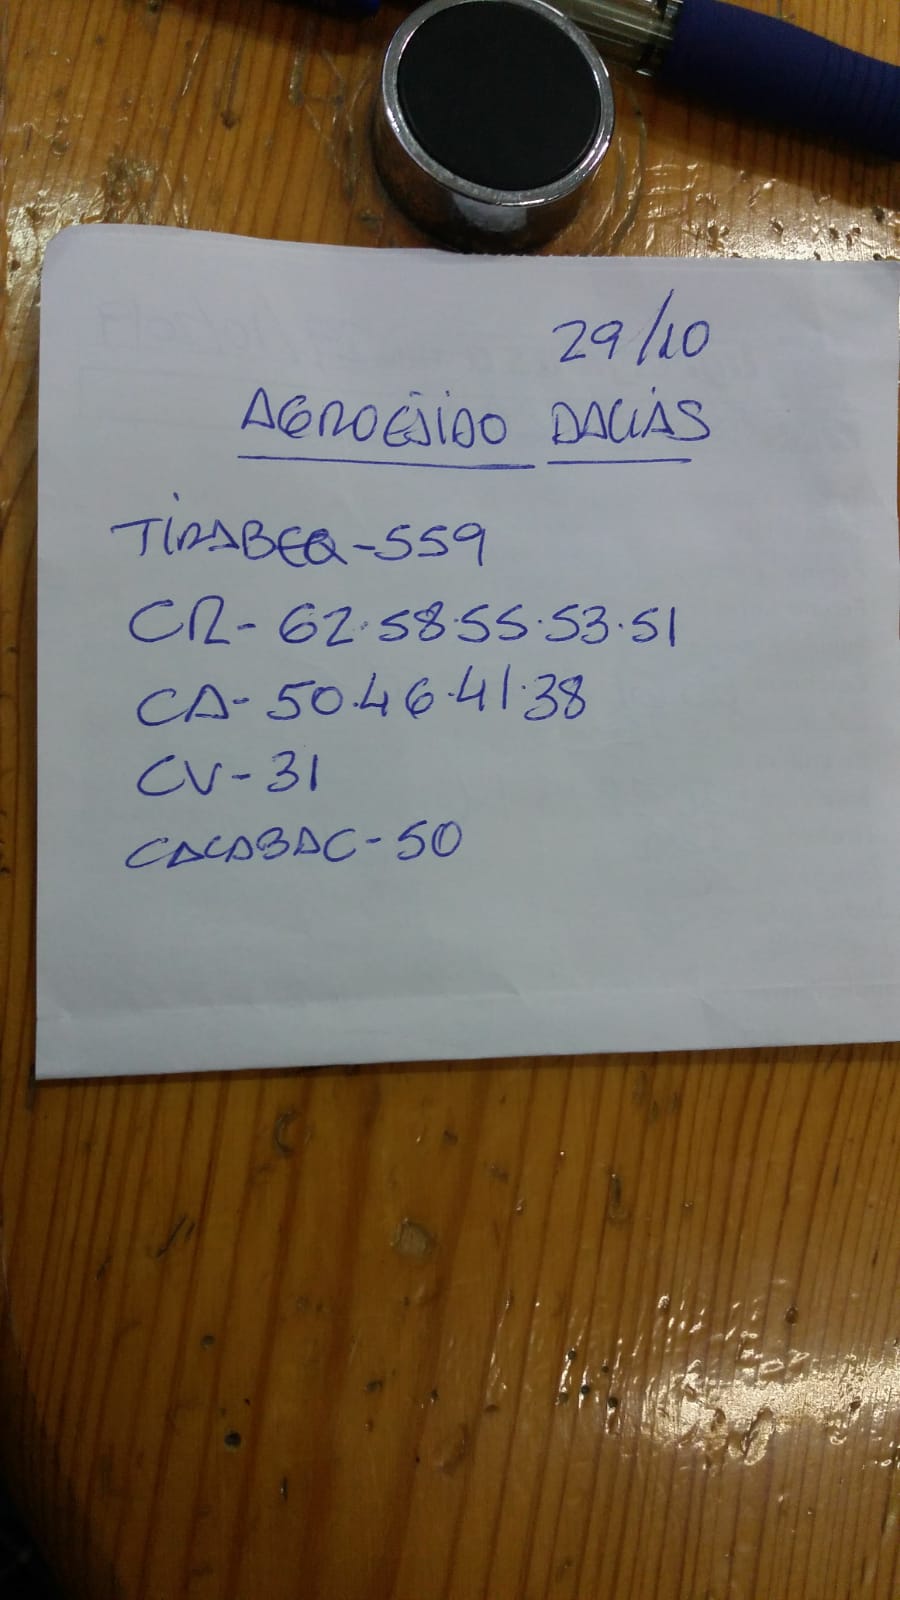 29/10
AGROEJIDO DALIAS
TIRABEQ-559
CR-62.58.55.53.51
CA-50.46.41.38
CV-31
CALABAC-50